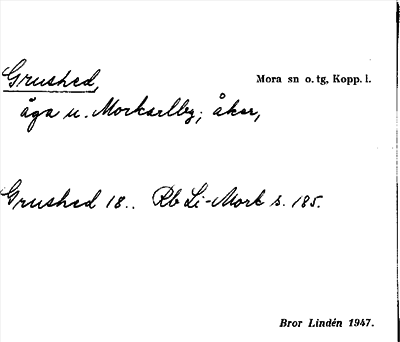 Grushed, Mora sn o. tg, Kopp. l.
äga u. Morkarlby; åker,
Grushed 18.. Rb Li-Mork s. 185.
Bror Lindén 1947.